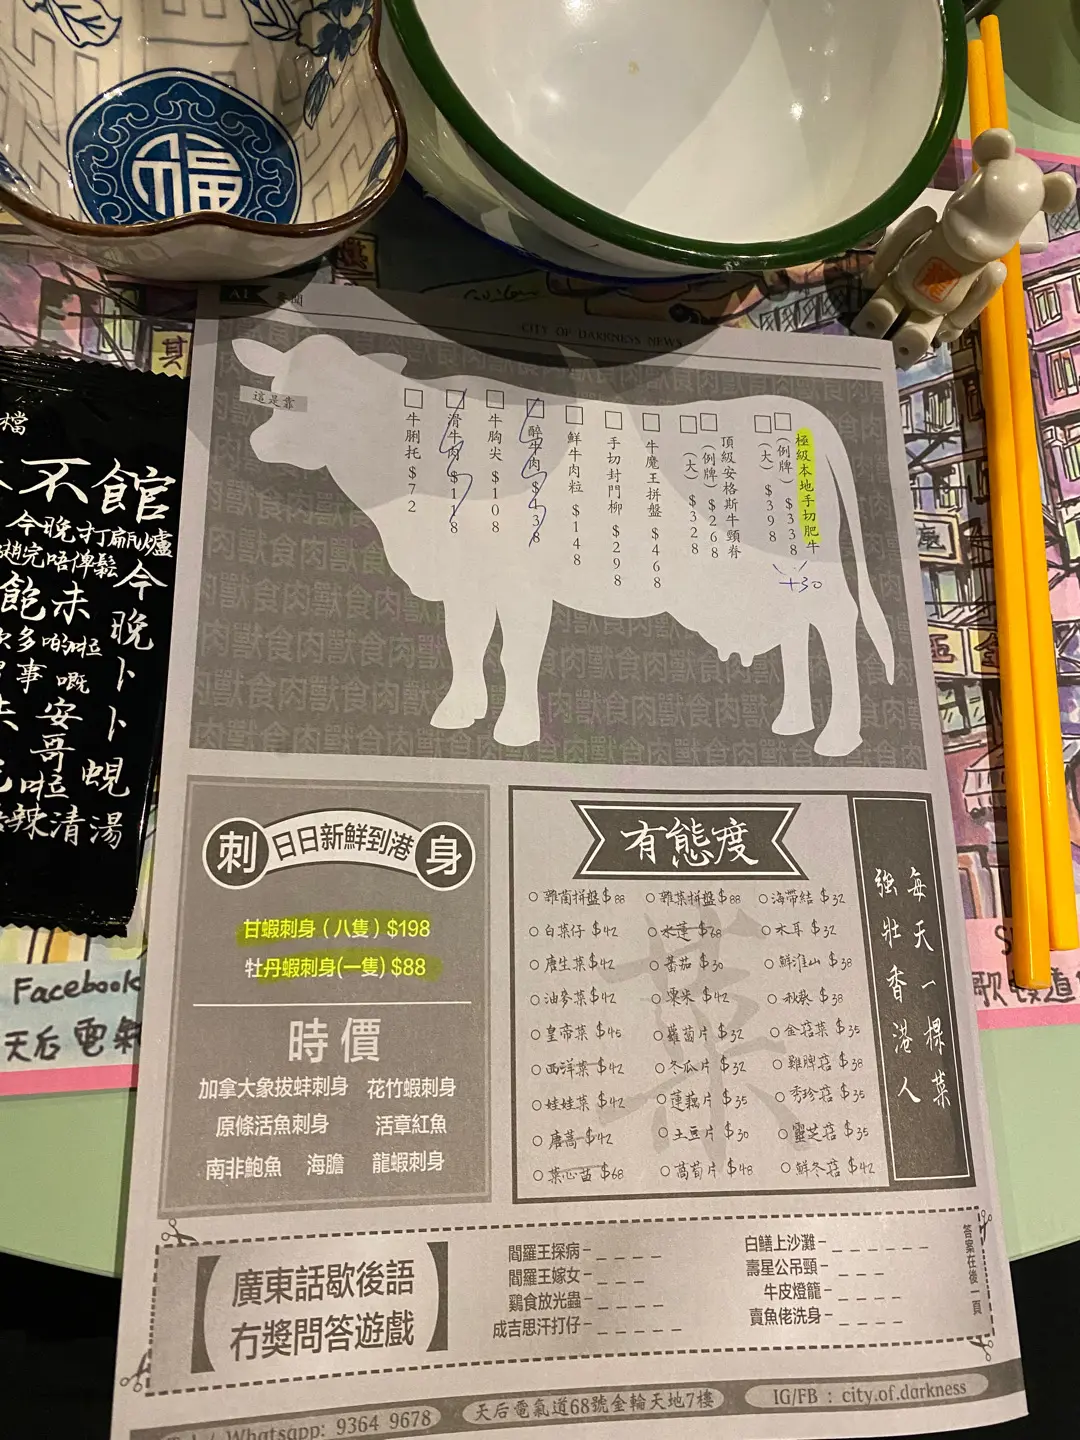 福
A1
CITY OF DARKNESS NEWS
這是靠
極級本地手切肥牛
(例牌) $338
(大) $398
+30
頂級安格斯牛頸脊
(例牌) $268
(大) $328
牛魔王拼盤 $468
手切封門柳 $298
鮮牛肉粒 $148
醉牛肉 $138
牛胸尖 $108
滑牛肉 $118
牛脷托 $72
刺 日日新鮮到港 身
甘蝦刺身(八隻) $198
牡丹蝦刺身(一隻) $88
時價
加拿大象拔蚌刺身 花竹蝦刺身
原條活魚刺身 活章紅魚
南非鮑魚 海膽 龍蝦刺身
有態度
雜菌拼盤 $88 雜菜拼盤 $88 海帶結 $32
白菜仔 $42 水蓮 $68 木耳 $32
唐生菜 $42 番茄 $30 鮮淮山 $38
油麥菜 $42 粟米 $42 秋葵 $38
皇帝菜 $45 蘿蔔片 $32 金菇菜 $35
西洋菜 $42 冬瓜片 $32 雞脾菇 $38
娃娃菜 $42 蓮藕片 $35 秀珍菇 $35
唐蒿 $42 土豆片 $30 靈芝菇 $35
菜心苗 $68 萵筍片 $48 鮮冬菇 $42
每天一棵菜
強壯香港人
廣東話歇後語
冇獎問答遊戲
閻羅王探病- _ _ _ _
閻羅王嫁女- _ _ _
鷄食放光蟲- _ _ _ _
成吉思汗打仔- _ _ _ _ _
白鱔上沙灘- _ _ _ _ _ _
壽星公吊頸- _ _ _
牛皮燈籠- _ _ _ _
賣魚佬洗身- _ _ _ _
答案在後一頁
Whatsapp: 9364 9678
天后電氣道68號金輪天地7樓
IG/FB : city.of.darkness
檔
不館
今晚打邊爐
飽未
今晚卜卜蜆
安哥啦
辣清湯
Facebook
天后電氣
其